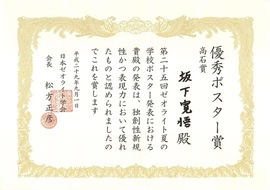 優秀ポスター賞
高石賞
坂下寛悟 殿
第二十五回ゼオライト夏の
学校ポスター発表における
貴殿の発表は、独創性新規
性かつ表現力において優れ
たものと認められましたの
でこれを賞します
平成二十九年九月一日
日本ゼオライト学会
会長 松方正彦